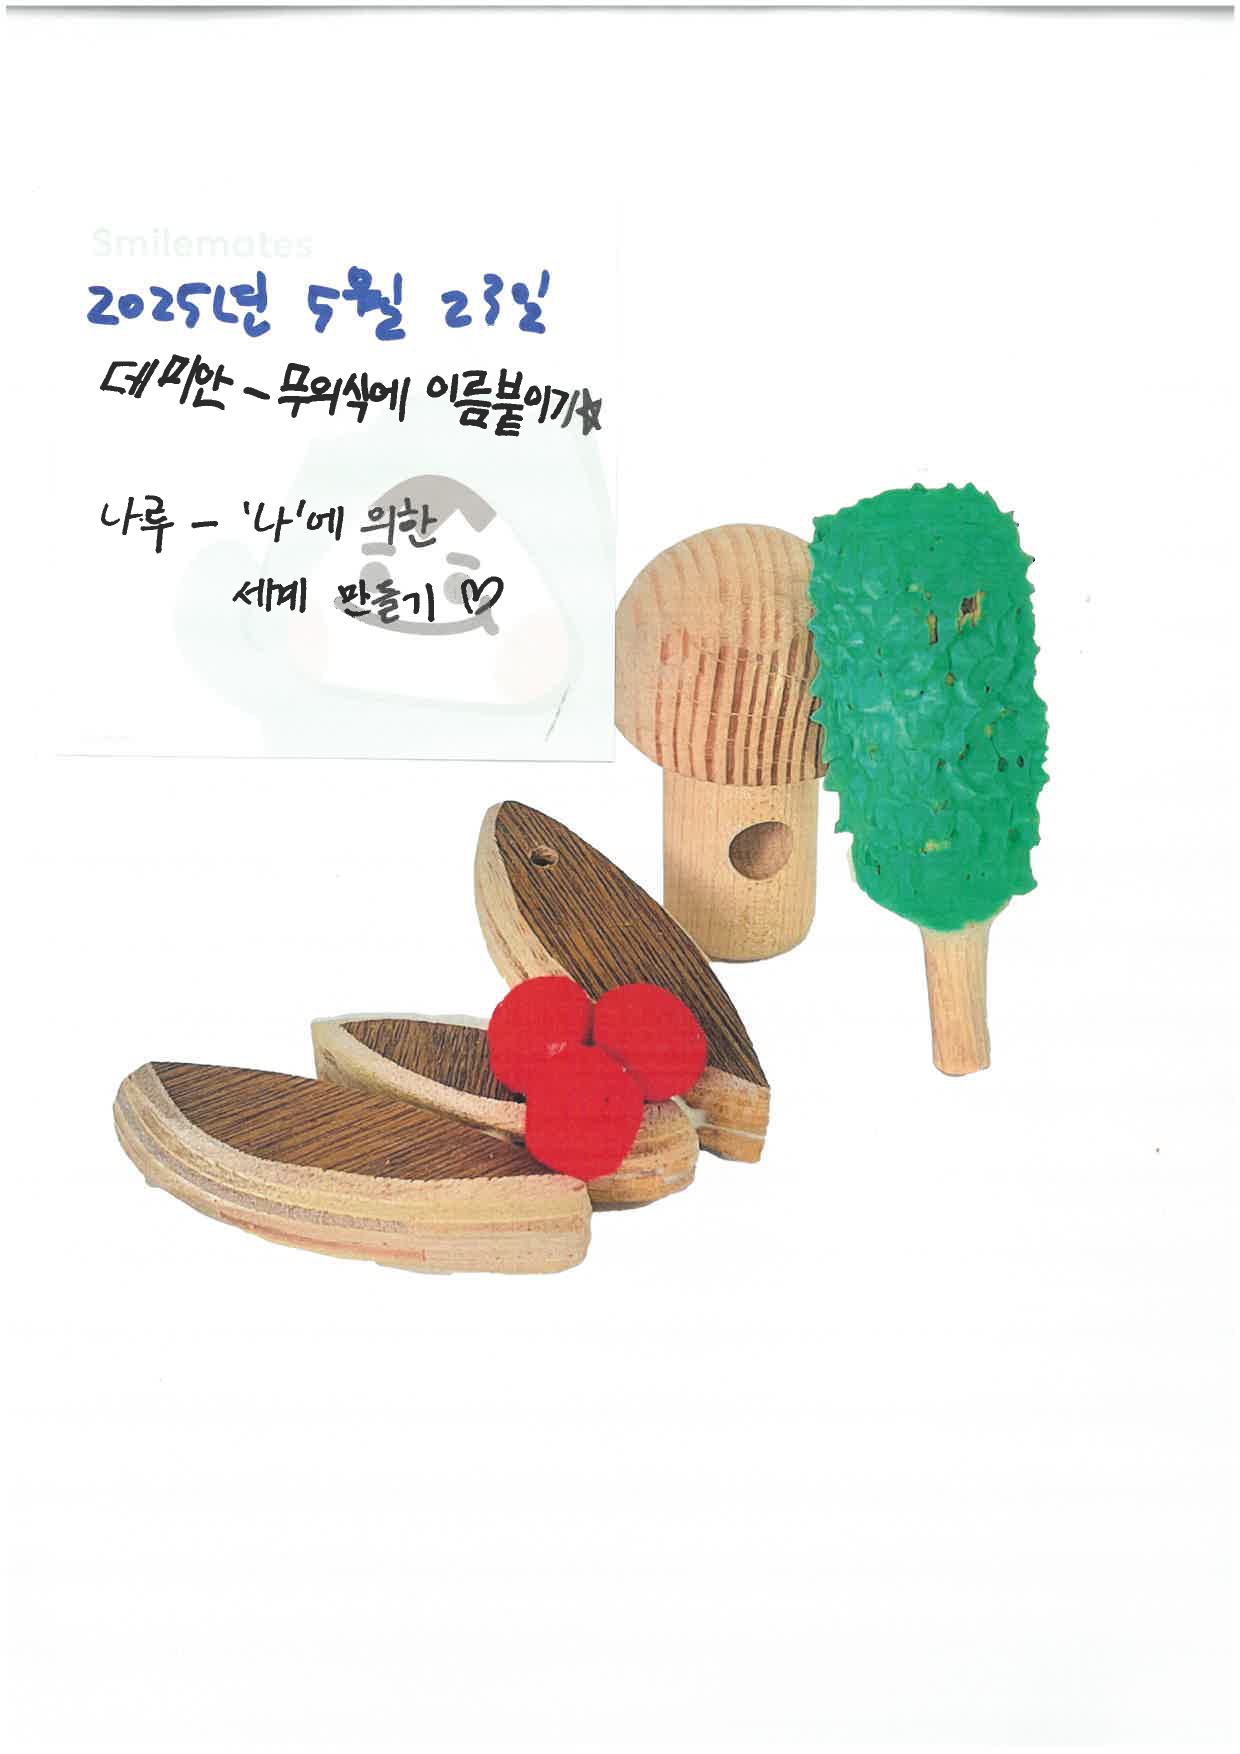 Smilemates
2025년 5월 23일
데미안 - 무의식에 이름붙이기☆
나루 - '나'에 의한
세계 만들기 ♡